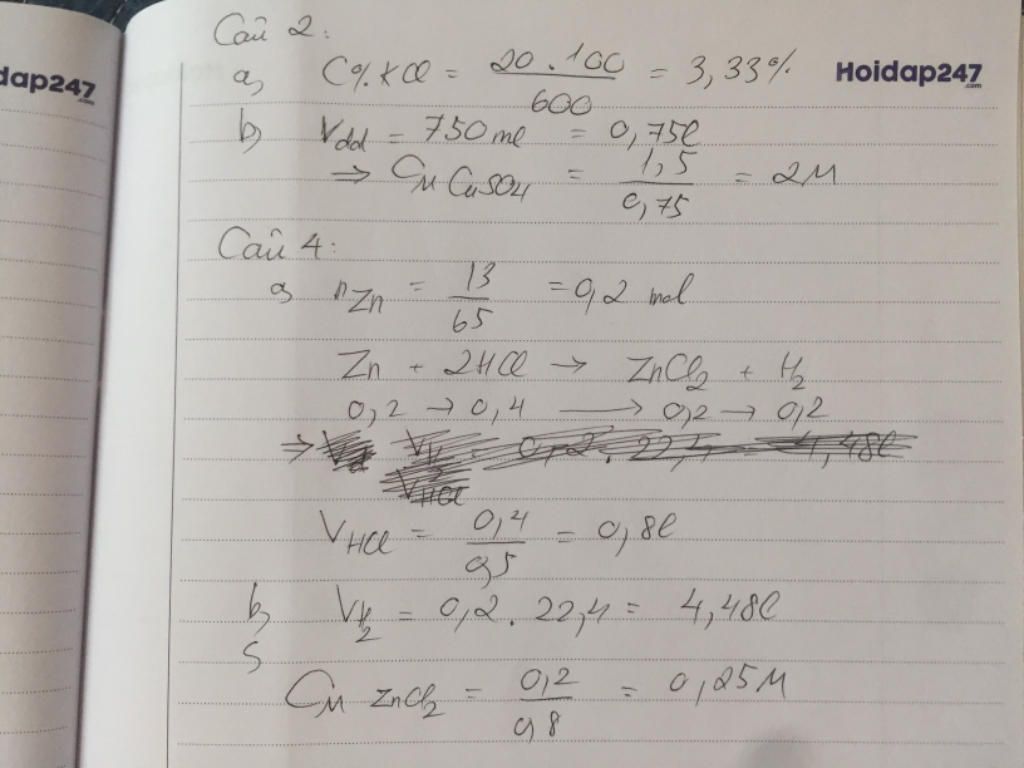 dap247
.com
Câu 2:
a, C% KCl = 20.100/600 = 3,33%
Hoidap247
.com
b, Vdd = 750 ml = 0,75l
=> CM CuSO4 = 1,5/0,75 = 2M
Câu 4:
a, nZn = 13/65 = 0,2 mol
Zn + 2HCl → ZnCl2 + H2
0,2 → 0,4 → 0,2 → 0,2
=> VH2 = 0,2.22,4 = 4,48l
VHCl
VHCl = 0,4/0,5 = 0,8l
b, VH2 = 0,2.22,4 = 4,48l
c,
CM ZnCl2 = 0,2/0,8 = 0,25M